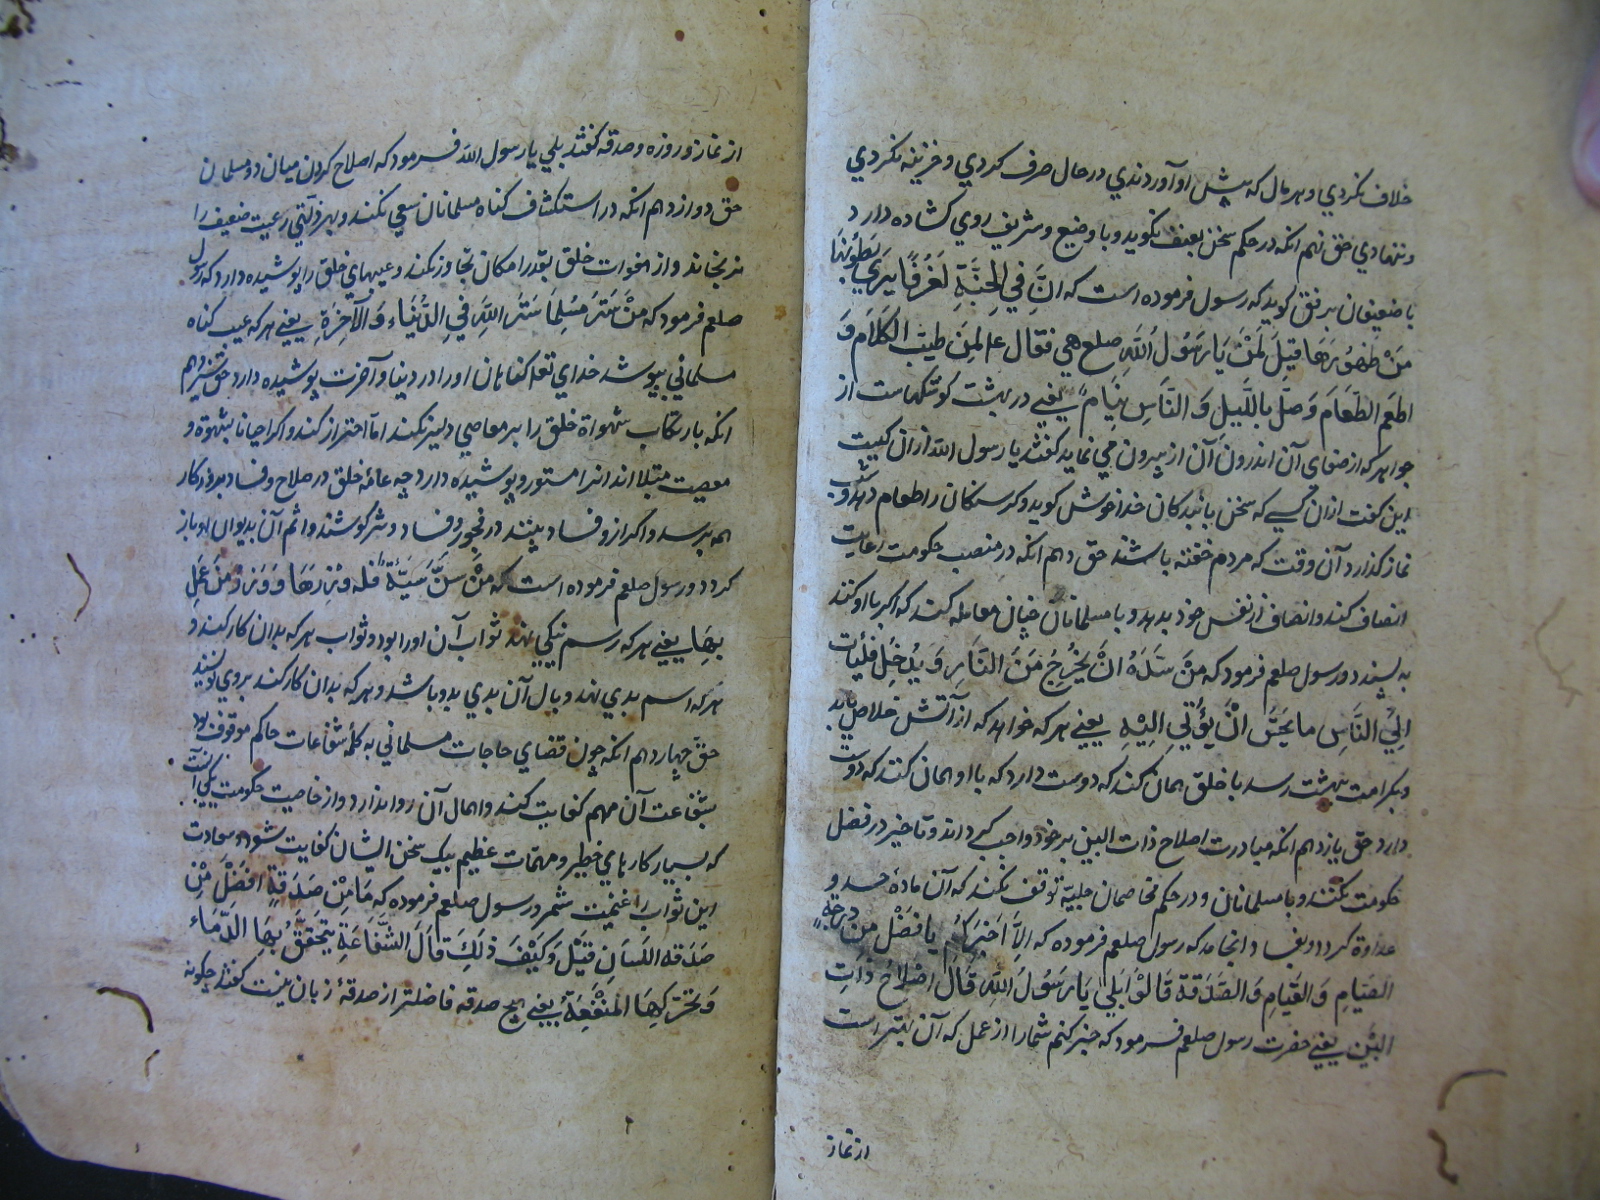 خلاف نکردي و هر مال که پیش او آوردندي در حال صرف کردي و خزینه نکردي
و ننهادي حق نهم انکه در حکم سخن بعنف نکوید و با وضیع و شریف روي کشاده دارد و
با ضعیفان برفق کوید که رسول فرموده است که اِنَّ فِي الجَنَّةِ لَغُرَفًا یَرَي بطُونَهَا
مَنْ ظهُورَهَا قِیلَ لَمَنْ یَا رَسُولُ اللَّهِ صلعم هی فقال علم لِمَنْ طیّبَ الکَلَامَ وَ
اطعَم الطَعَامَ وَ صَلَّ بِاللَّیلِ وَ النَّاسِ نِیَام یعني در بهشت کوشکهاست از
جواهر که از صفاي آن اندرون آن از بیرون مي نماید کفتند یا رسول الله از ان کیست
این کفت ازان کسي که سخن با بندکان خدا خوش کوید و کرسنکان را طعام دهد و شب
نماز کذارد آن وقت که مردم خفته باشند حق دهم انکه در منصب حکومت رعایت
انصاف کند و انصاف از نفس خود بدهد و با مسلمانان چنان معامله کند که اکر با او کنند
به پسندد و رسول صلعم فرمود که مَنْ سَرَّهُ انَّ یَخْرُجَ مَنَ النَّارِ وَ یُدخِلَ فَلْیَات
اِلَيّ النَّاسِ ما یَحَبُّ انْ یَؤتِيَ اِلَیْهِ یعني هر که خواهد که از آتش خلاص یابد
و بکرامت بهشت رسد با خلق همان کند که دوست دارد که با او همان کنند که دوست
دارد حق یازدهم انکه مبادرت اصلاح ذات البین بر خود واجب کرداند و تاخیر در فصل
حکومت نکند و با مسلمانان و در حکم مخاصمان توقف نکند که آن مادهٔ حسد و
عداوة کردد و بفساد انجامد که رسول صلعم فرموده که اِلَّا اَخبَرَکُم یا فَضْل مِن دَرجَةِ
الصَیَامِ وَ القَیَامِ وَ الصَّدَقَة قَالُوْ ابَلَيٰ یَا رَسُوْلَ اللَّهِ قَالَ اصْلَاحُ ذَاتِ
البَیْن یعني حضرت رسول صلعم فرمود که خبر کنم شما را از عمل که آن بهتر است
از نماز
از نماز و روزه و صدقه کفتند بلي یا رسول الله فرمود که اصلاح کردن میان دو مسلمان
حق دوازدهم انکه در استکشاف کناه مسلمانان سعي نکند و بهر زلتي رعیت ضعیف را
نرنجاند و از هفوات خلق بقدر امکان تجاوز کند و عیبهاي خلق را پوشیده دارد که رسول
صلعم فرمود که مَنْ سَتَرَ مُسْلِمَاً سَتَرَ اللَّهِ في الدُّنْیَاءِ وَ الآخِرَةِ یعني هر که عیب کناه
مسلماني بپوشد خداي تعلي کناهان او را در دنیا و آخرت پوشیده دارد حق سیزدهم
انکه بارتکاب شهواة خلق را بر معاصي دلیر نکند اما احتراز کند و اکر احیانا بشهوة و
معصیت مبتلا اند انرا مستور و پوشیده دارد چه عامهٔ خلق در صلاح و فساد بروزکار
همه پرسد و اکر از و فساد بینند در فجور و فساد و شر کوشند و اثم آن بدیوان او باز
کردد و رسول صلعم فرموده است که مَنْ سَنَّ سَیَّئَة فَله وِزْرهَا وَ وَزر وَ مَنْ عَمَل
بِهَا یعني هر که رسم نیکي نهند ثواب آن او را بود و ثواب هر که بدان کار کند و
هر که اسم بدي نهند وبال آن بدي بدو باشد و هر که بدان کار کند بروي نویسند
حق چهاردهم انکه چون قضاي حاجات مسلماني به کلمهٔ شفاعات حاکم موقوف بود
بشفاعت آن مهم کفایت کند و اهمال آن روا ندارد و از خاصیت حکومت یکي آنست
که بسیار کارهاي خطیر و مهمات عظیم بیک سخن ایشان کفایت شود و سعادت
این ثواب را غنیمت شمرد و رسول صلعم فرموده که مَا مِنْ صَدَقَةٍ افضَلَ مِنْ
صَدَقه اللَسَانِ قِیَلَ وَ کَیْفَ ذٰلِکَ قَالَ الشَّفَاعَةِ یَتَحَقَقُ بِهَا الدِّمَاء
وَ تَجْرّ بِهَا المَنْفَعَةُ یعني هیچ صدقه فاضلتر از صدقهٔ زبان نیست کفتند چکونه